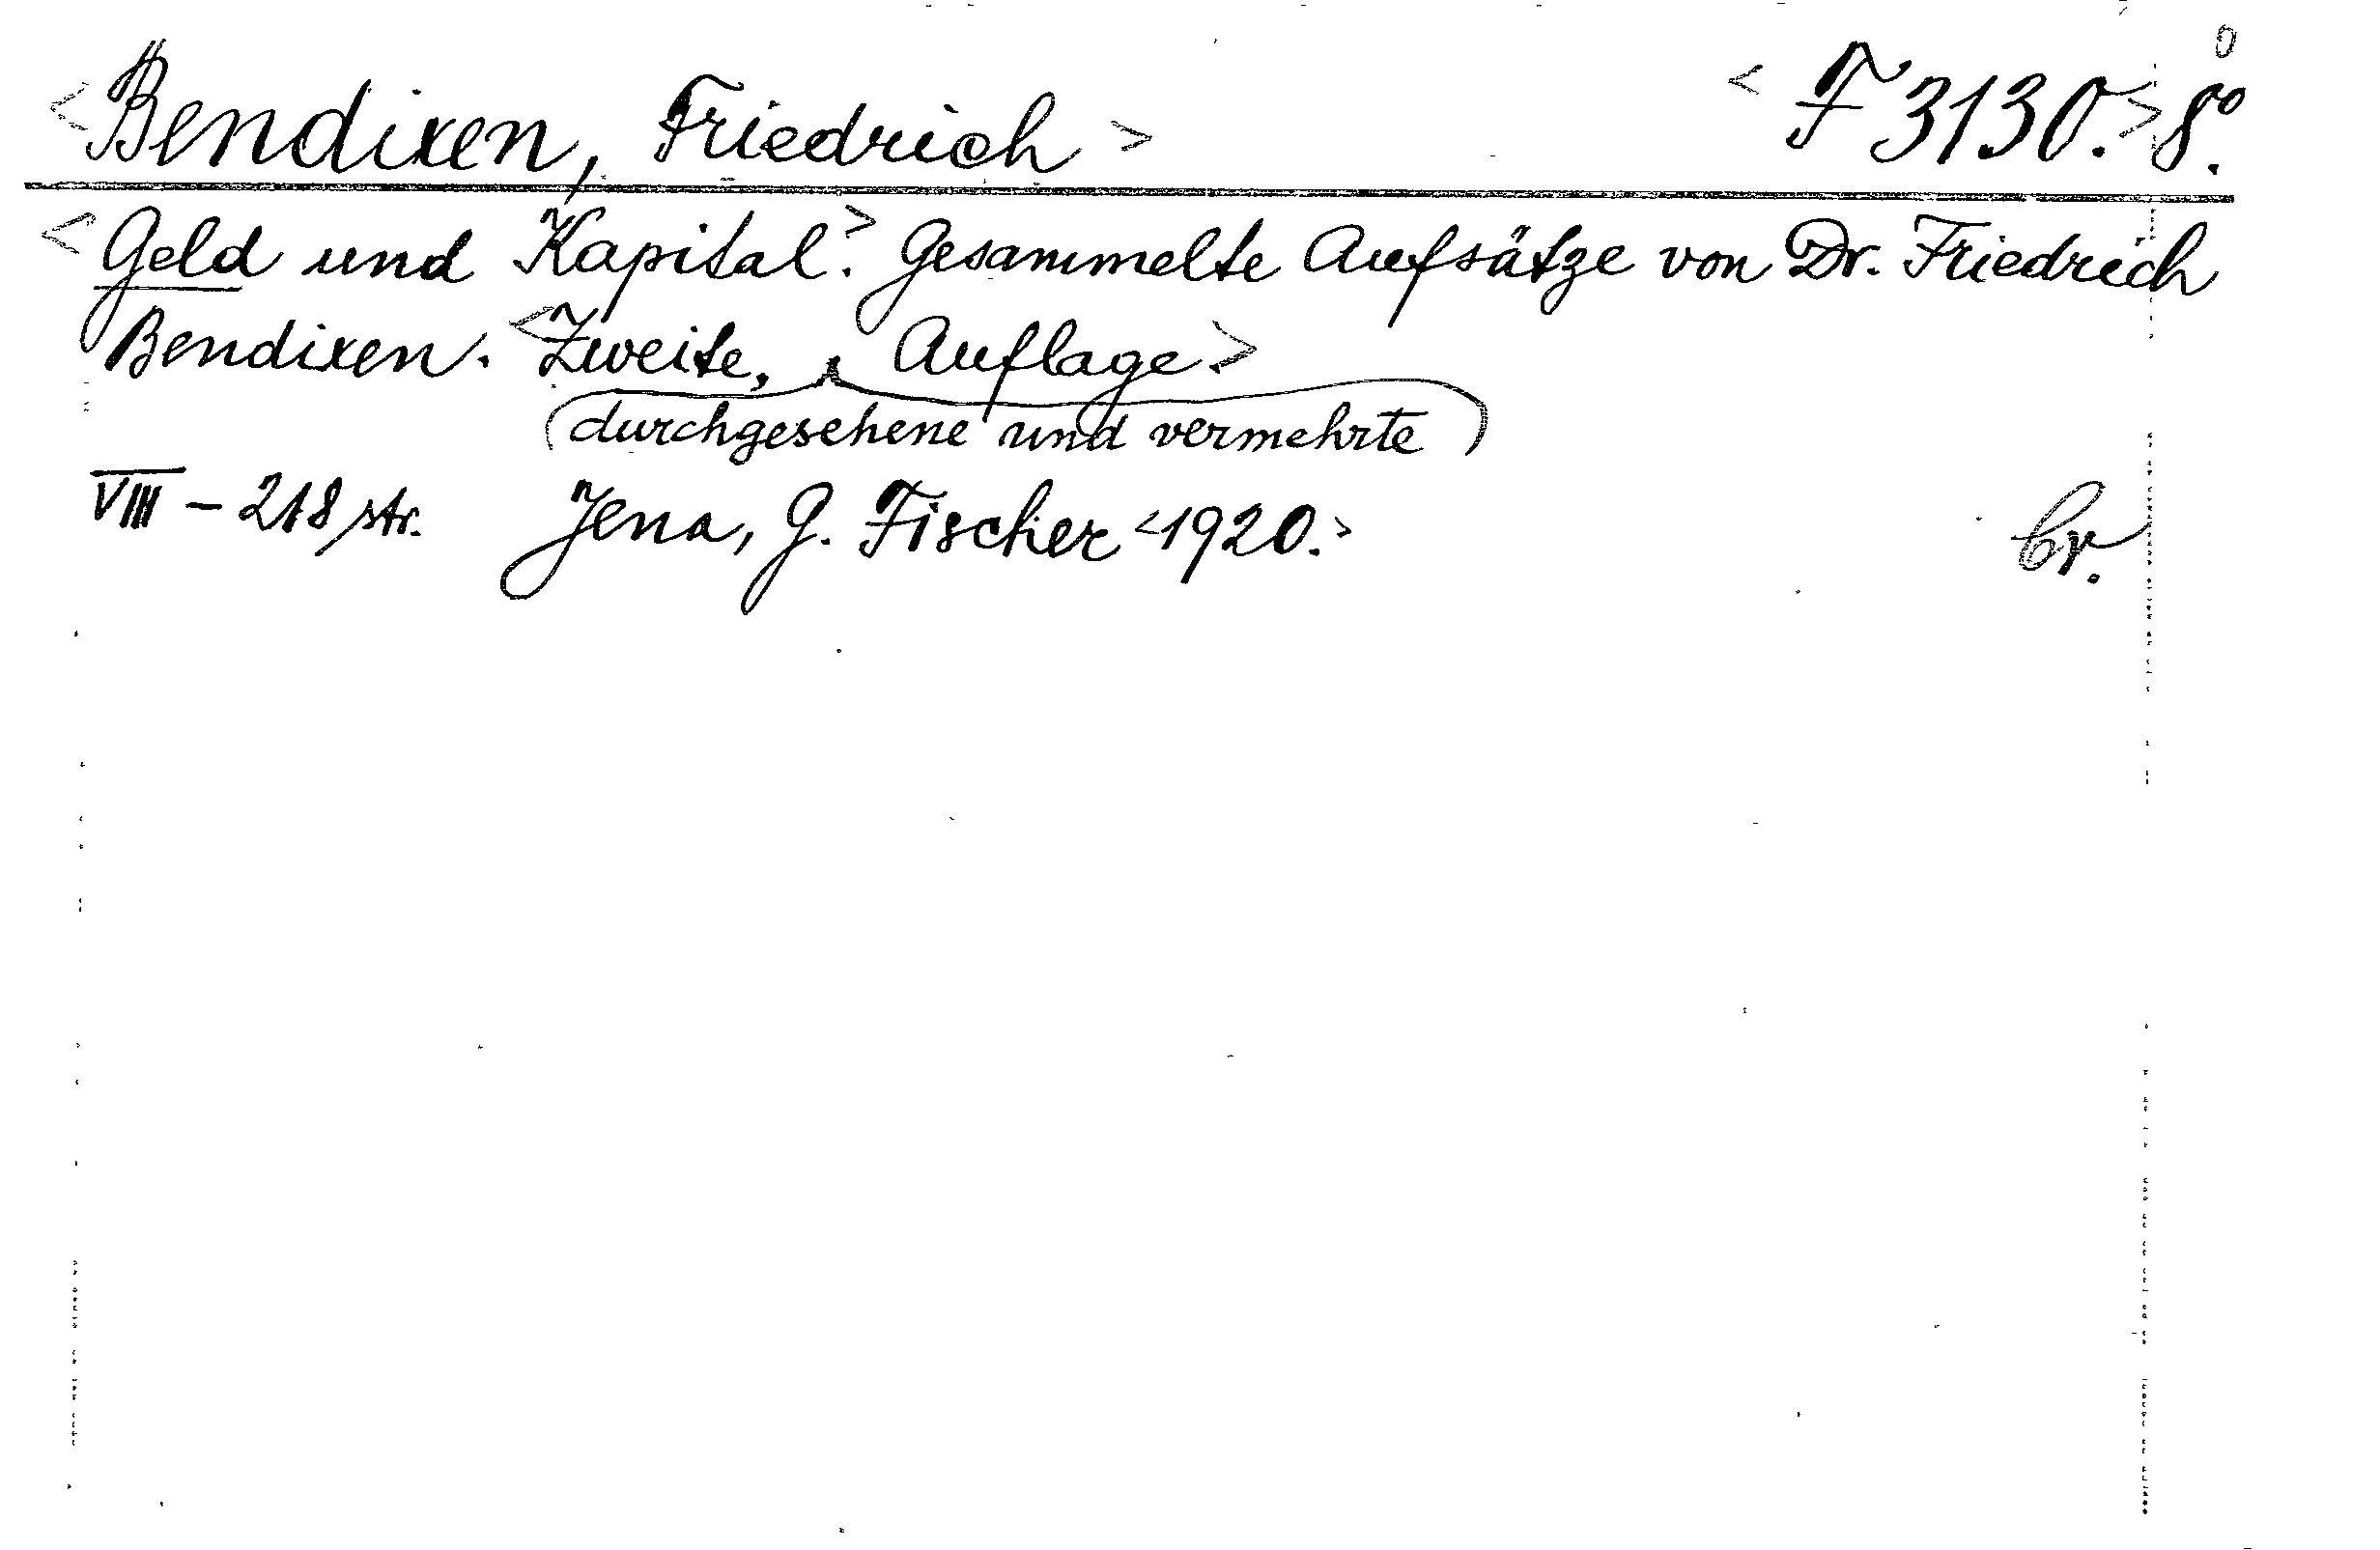 <Bendixen, Friedrich> <F 3130.> 8°.
<Geld und Kapital.> Gesammelte Aufsätze von Dr. Friedrich
Bendixen. <Zweite, Auflage.>
durchgesehene und vermehrte
VIII – 218 str. Jena, G. Fischer <1920.> br.